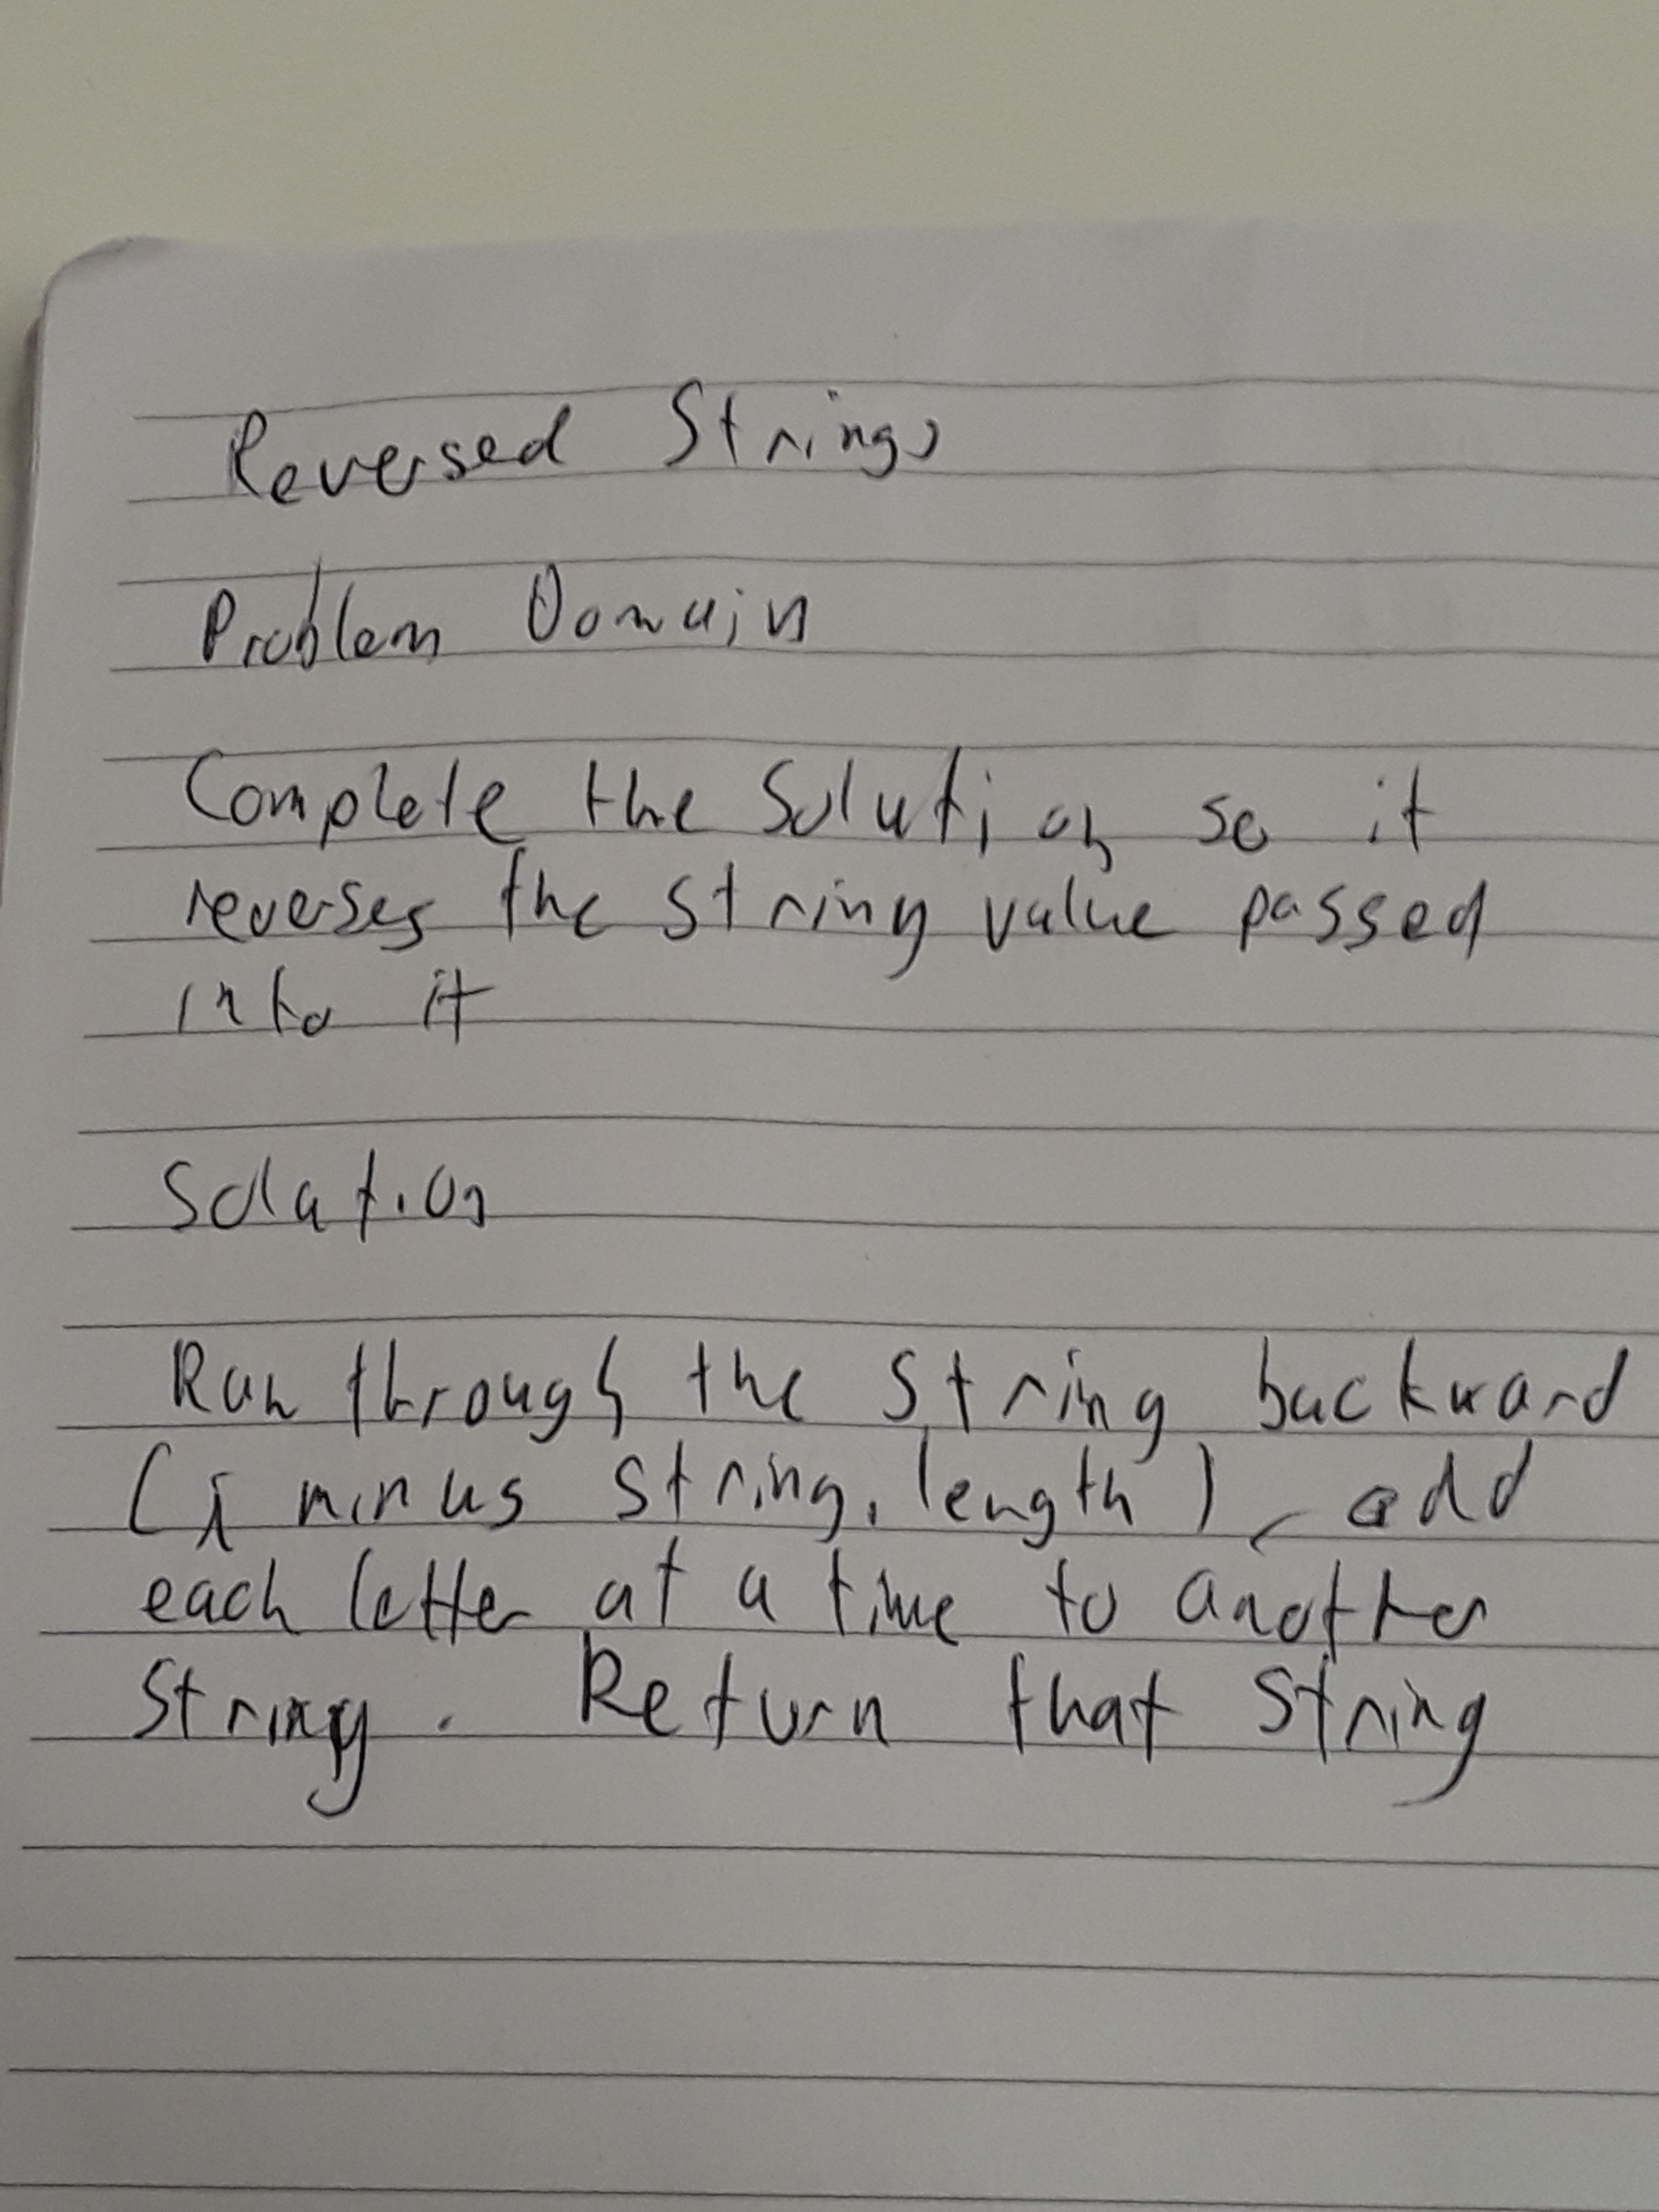 Reversed Strings
Problem Domain
Complete the Solution so it
reverses the string value passed
into it
Solution
Run through the string backward
(i minus string.length), add
each letter at a time to another
String. Return that string